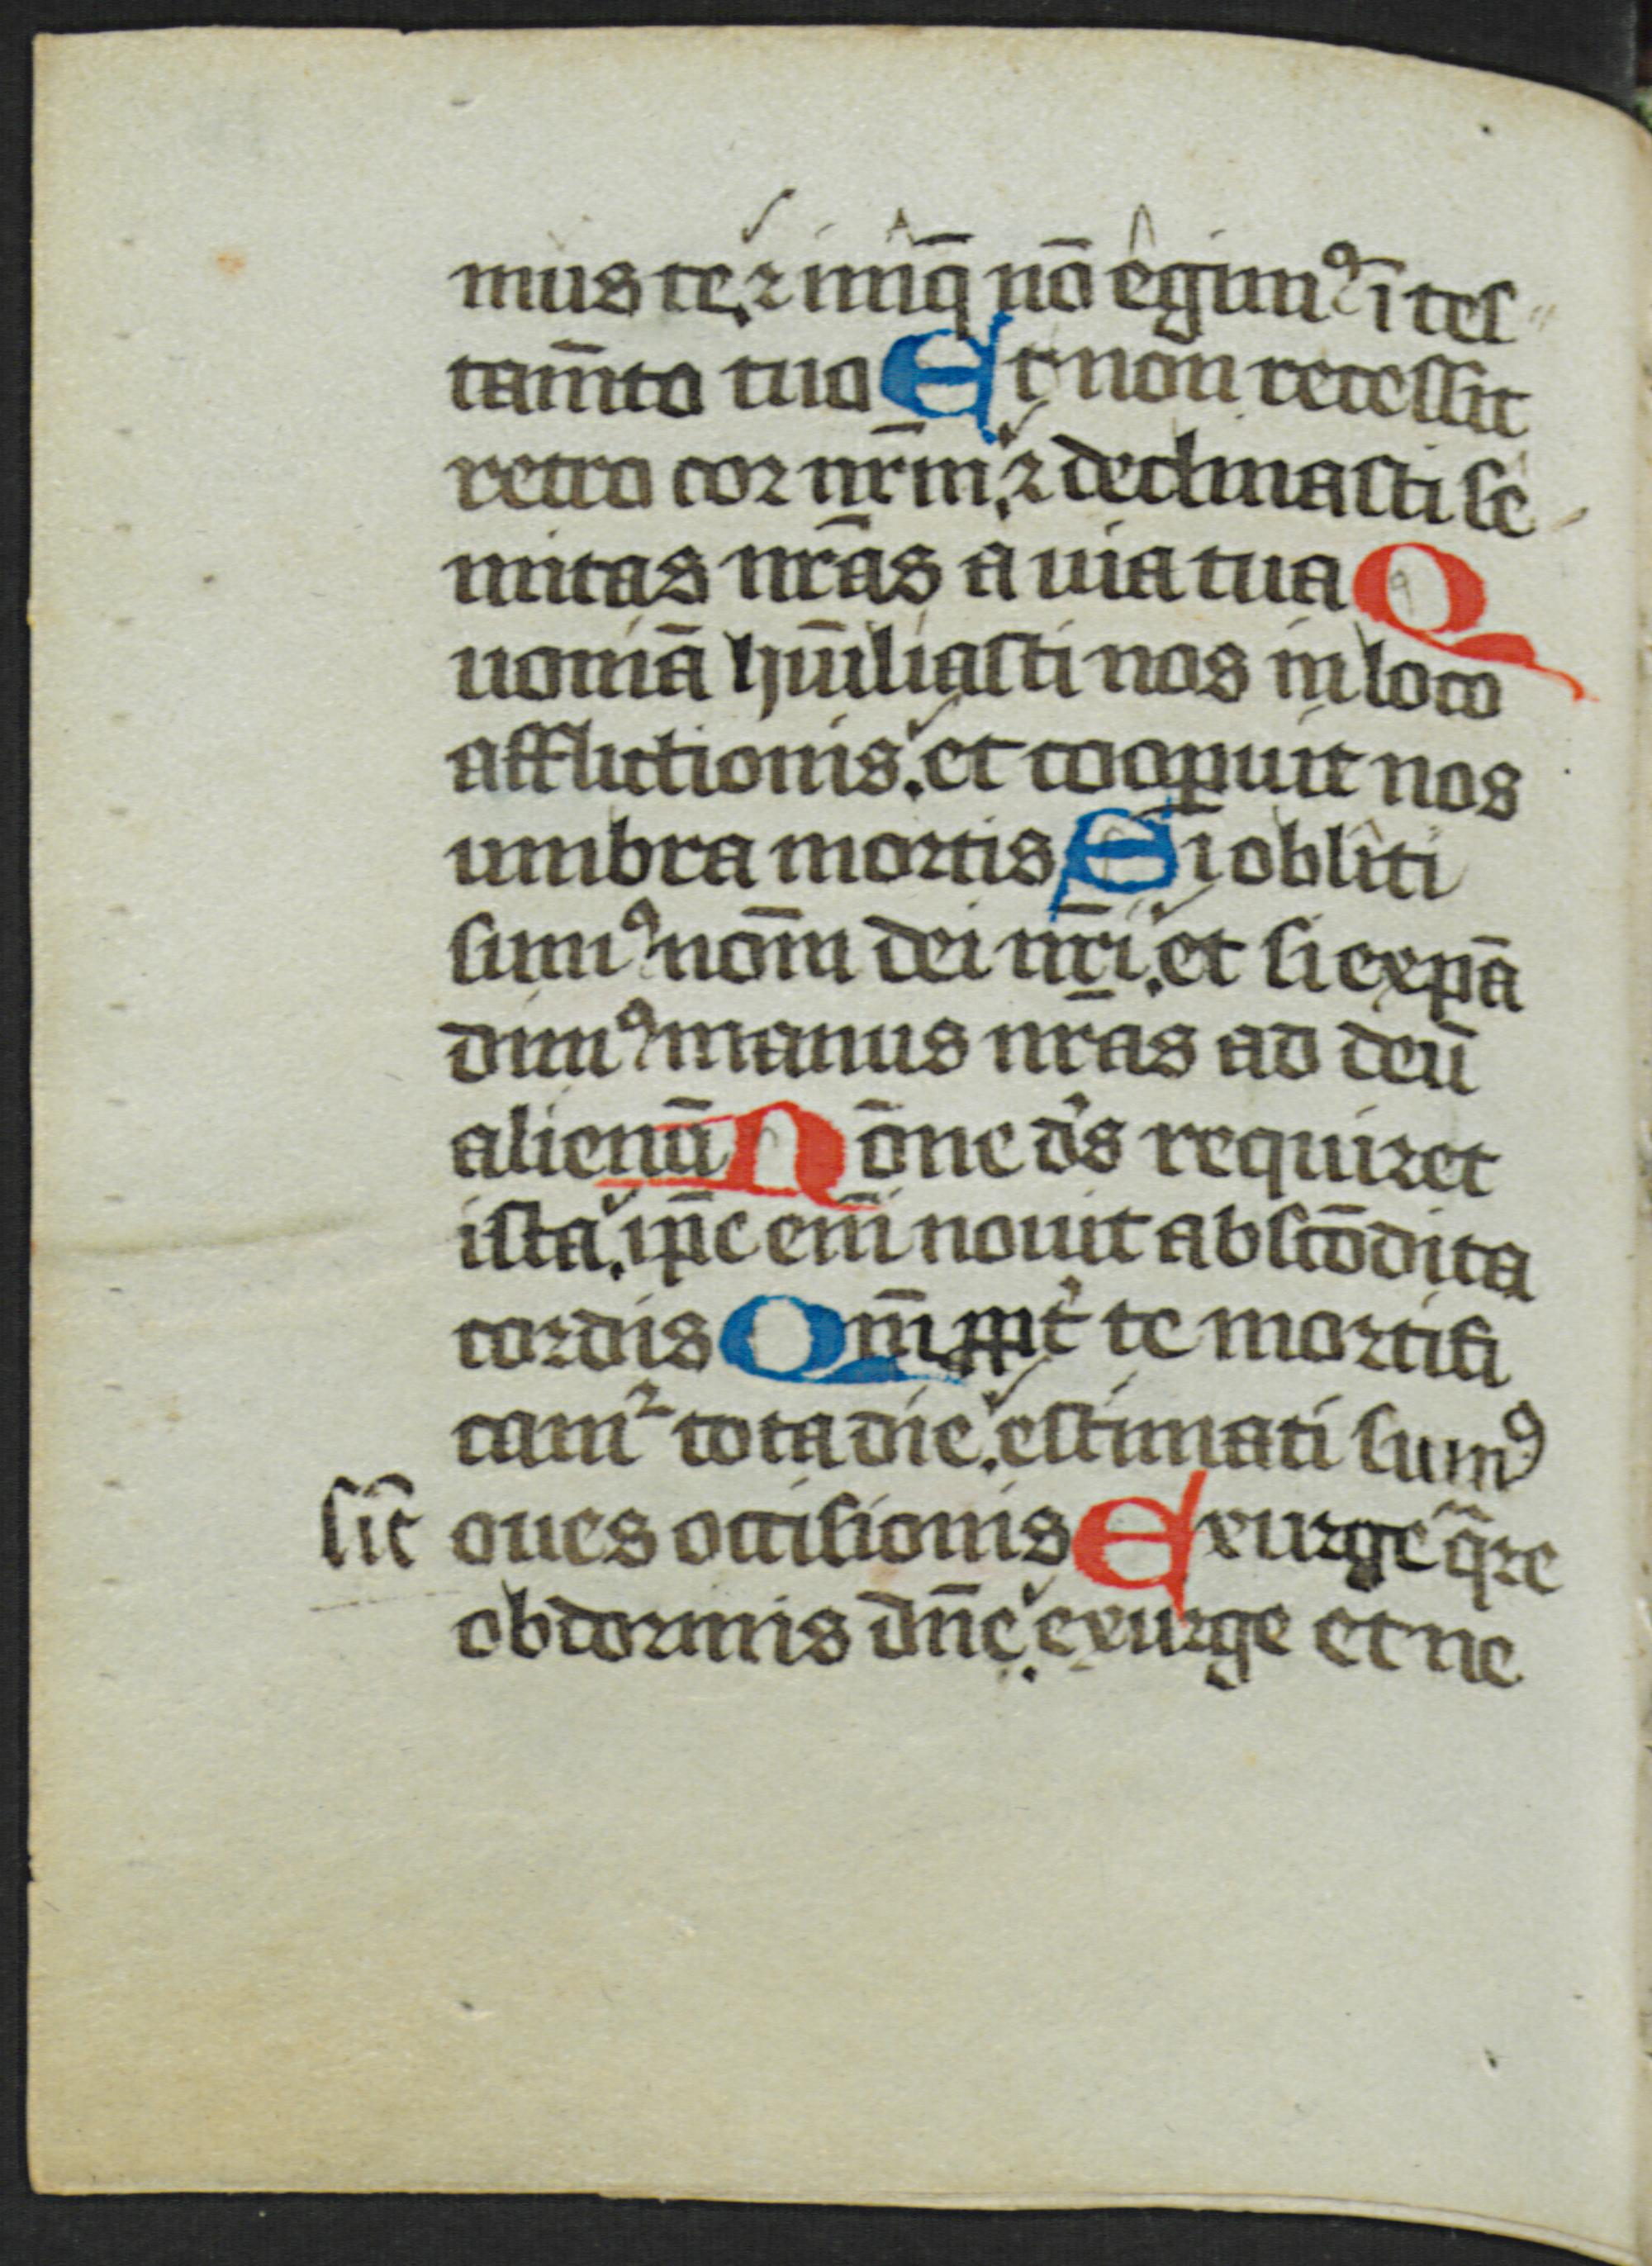 mus te. ⁊ iniq̄ nō egimꝰ ī tes
tam̄to tuo Et non recessit
retro cor nr̄m. ⁊ declinasti se
mitas nr̄as a uia tua Q
uoniā hūiliasti nos in loco
afflictionis. et coopuit nos
umbra mortis Si obliti
sumꝰ nom̄ dei nr̄i. et si expā
dimꝰ manus nr̄as ad deū
alienū Nōne ds̄ requiret
ista. ip̄e eni̅ nouit abscōdita
cordis Qm̄ ppt̄ te mortifi
camꝛ tota die. estimati sumꝰ
sic̄ oues occisionis Exurge q̄re
obdormis dn̄e. exurge et ne